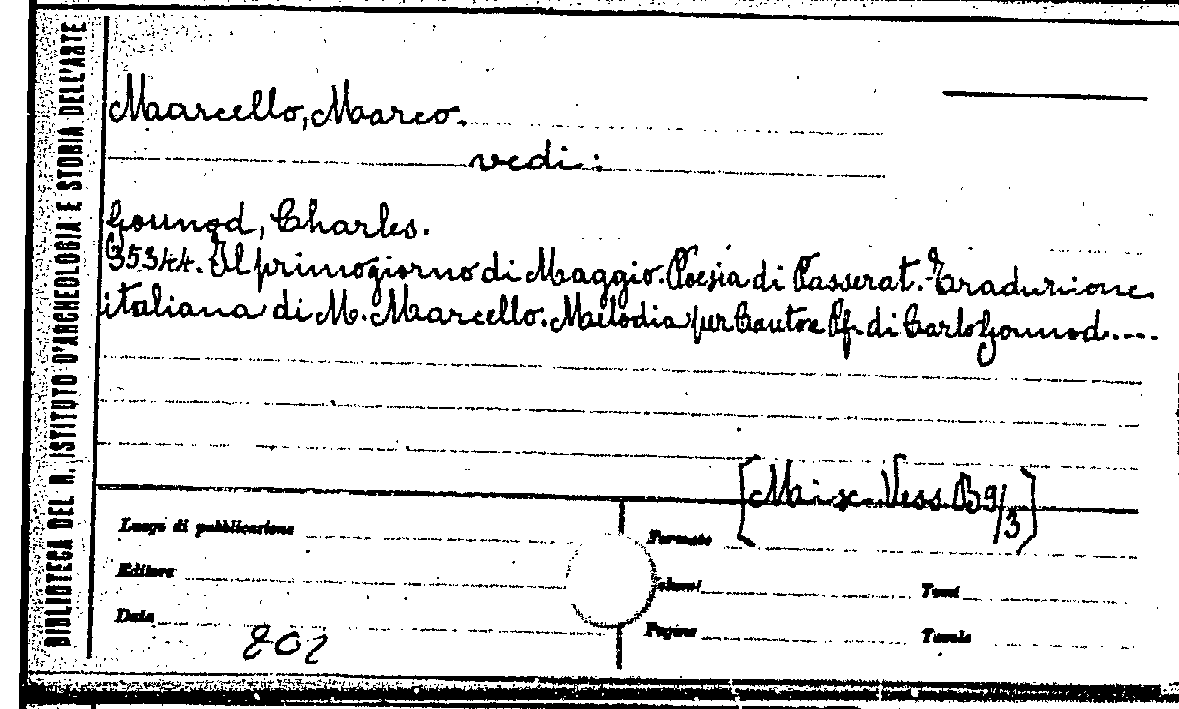 BIBLIOTECA DEL R. ISTITUTO D'ARCHEOLOGIA E STORIA DELL'ARTE
Marcello, Marco.
vedi:
Gounod, Charles.
35344. Il primo giorno di Maggio. Poesia di Passerat. Traduzione
italiana di M. Marcello. Melodia per Canto e Pf. di Carlo Gounod....
[Misc. Vess. B9/3]
Luogo di pubblicazione
Formato
Editore
Volumi
Tomi
Data
Pagine
Tavole
802